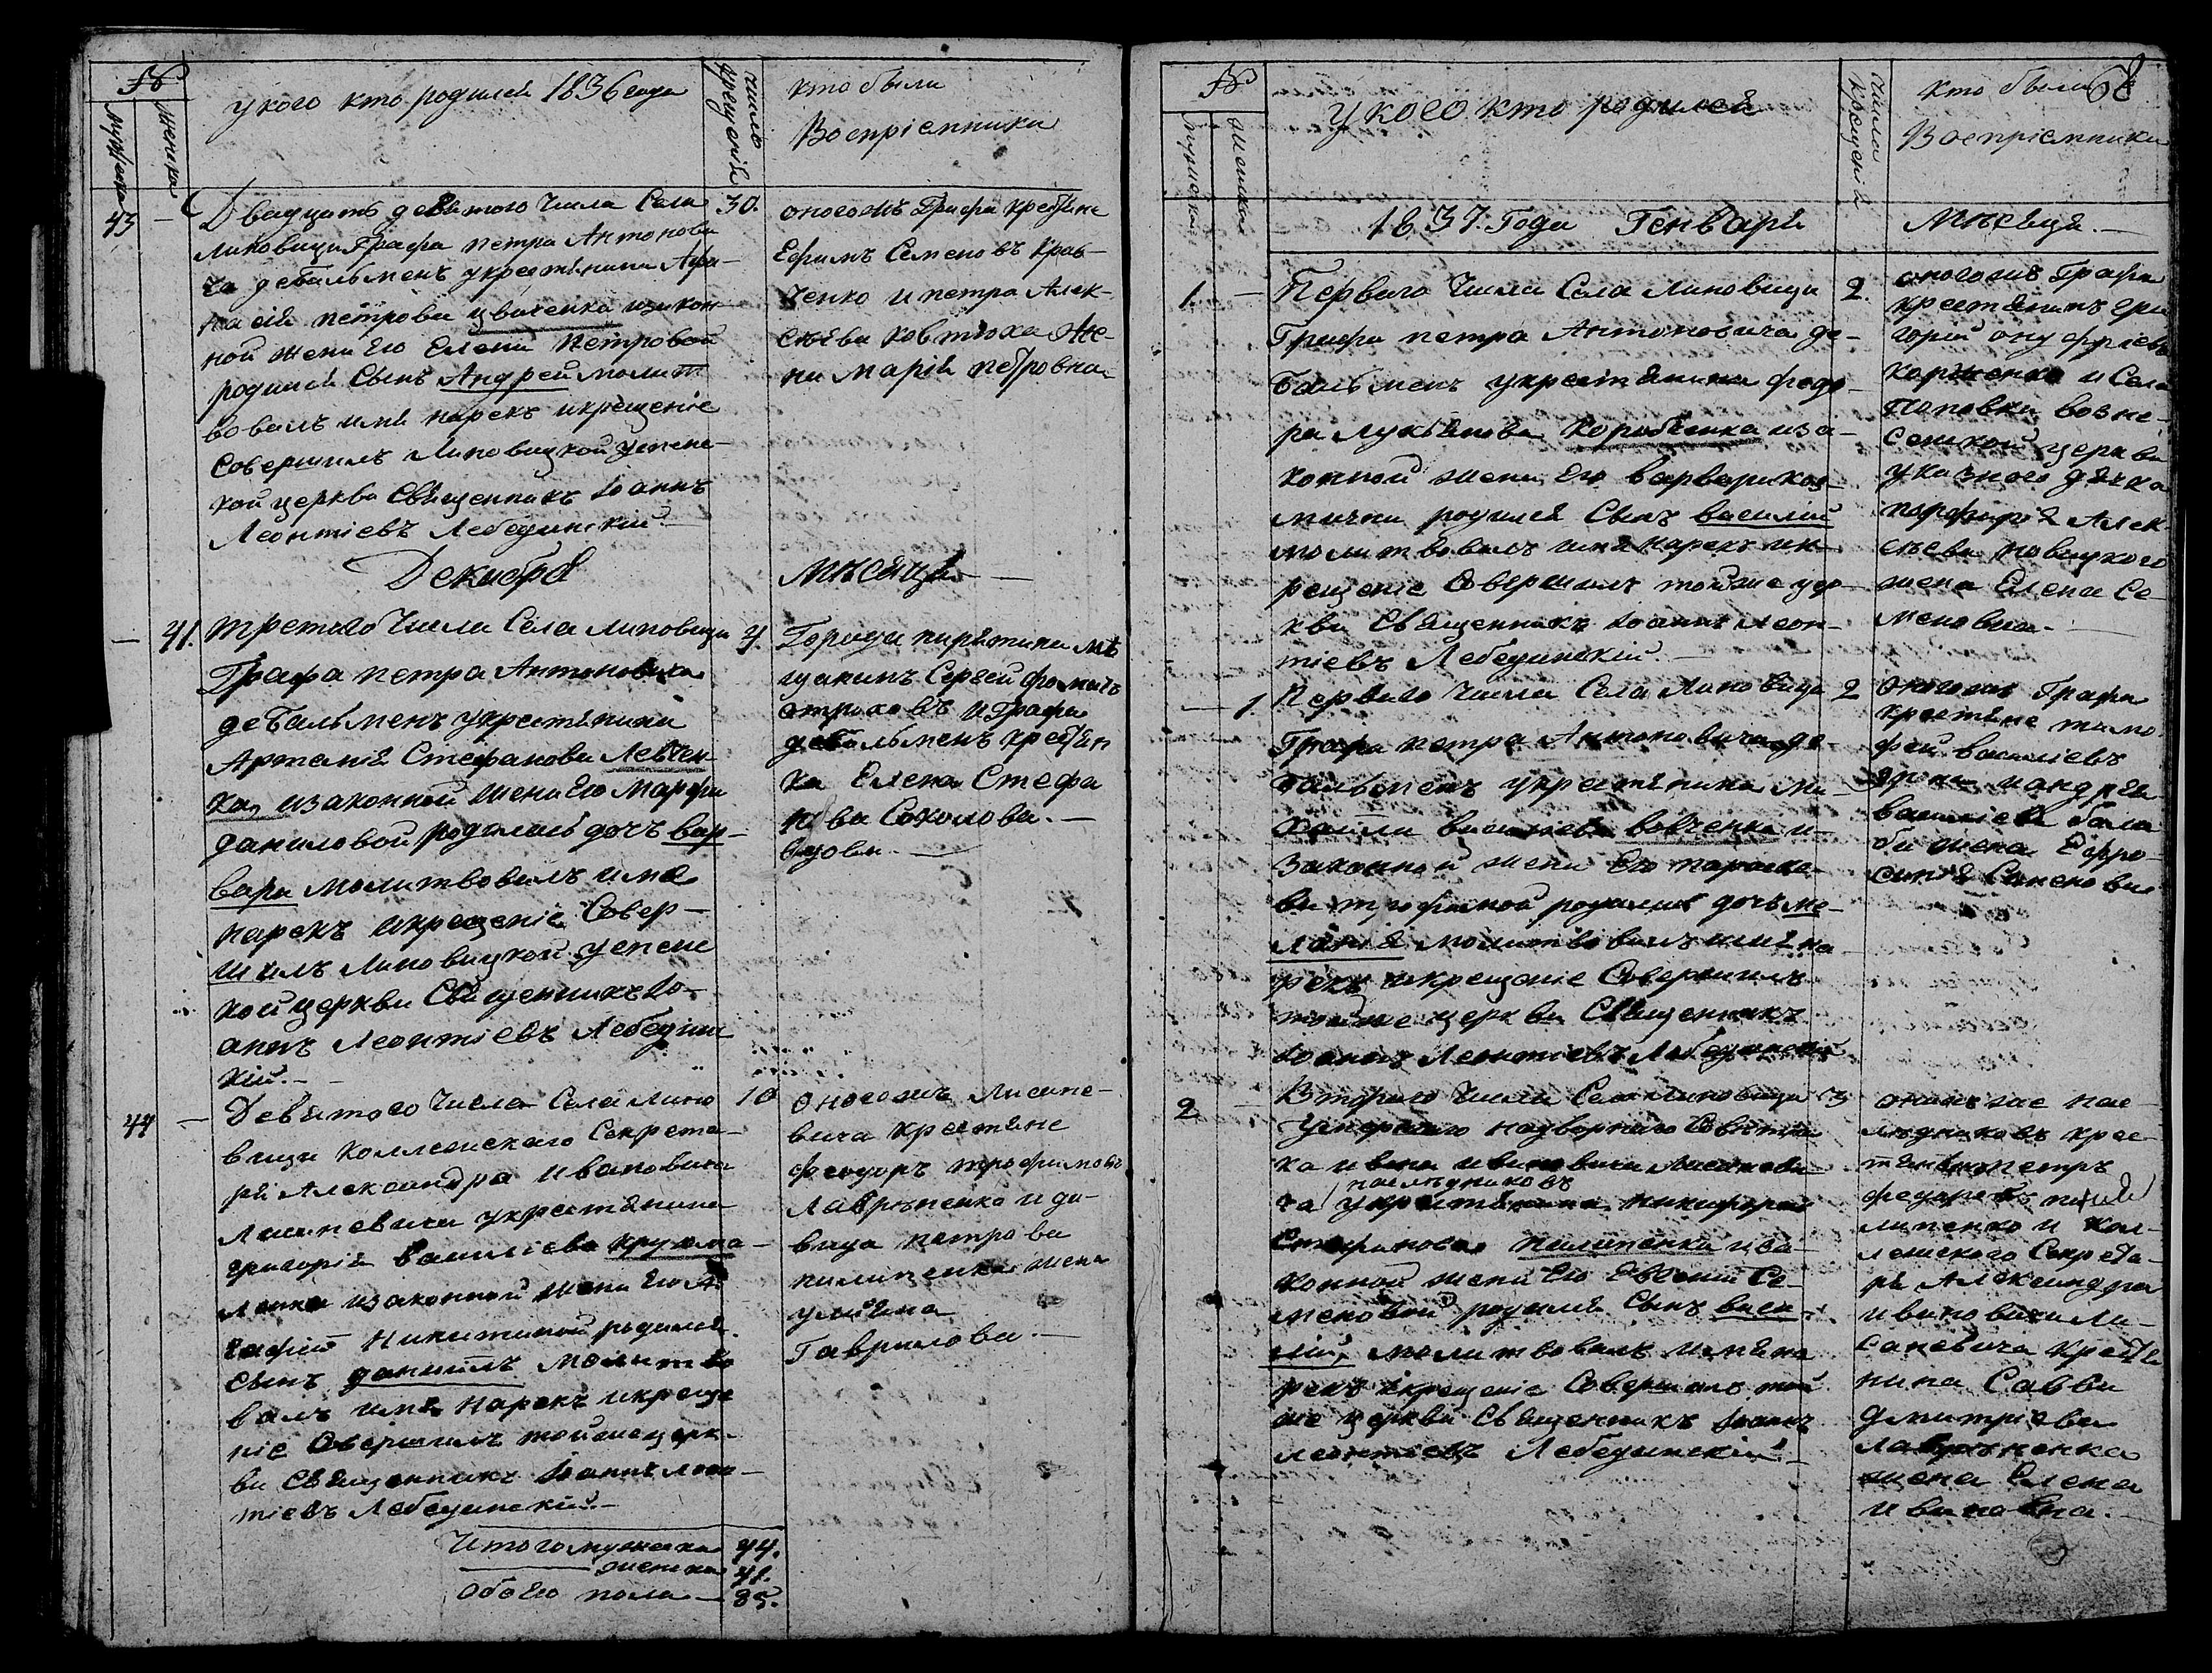 №
мужеска
женска
у кого кто родился 1836 года
число крещенія
кто были
Воспріемники
43
—
Двадцать девятого Числа Села
Липовици Графа петра Антонови
ча дебальменъ укрестянина Афа-
насія петрова цвиленка изакон-
ной жени Его Елени петровой
родился Сынъ Андрей молит
вовалъ имя нарекъ икрещеніе
Совершилъ Липовицкой успен-
кой церкви Священникъ Іоаннъ
Леонтіевъ Лебединскій. —
30.
оногожъ Графа крестяне
Ефимъ Семеновъ Крав-
ченко и петра Алек-
сѣева ковтюха же-
на Марія петровна
Декабря
Мѣсяца —
—
41.
третего Числа Села липовици
Графа петра Антоновича
дебальменъ укрестянина
Артемія Стефанова Левчен-
ка, изаконной жени Его Марфи
даниловой родилась дочъ вар-
вара молитвовалъ имя
нарекъ икрещеніе Совер-
шилъ Липовицкой успенс
кой церкви Священникъ Іо-
аннъ Леонтіевъ Лебединс
кій. —
4.
Города пирятина мѣ
щанинъ Сергей фомичъ
строковъ и Графа
дебальменъ крестян
ка Елена Стефа
нова Соколова. —
вдова. —
44
—
Девятого Числа Села Липо
вици Коллежскаго Секрета-
ря Александра Ивановича
Лисаневича укрестянина
григорія Василіева
изаконной жени Его А
гафіи Никитиной родился
Сынъ даниилъ молитво
валъ имя нарекъ икреще
ніе Совершилъ тойже церк-
ви Священникъ Іоаннъ леон-
тіевъ Лебединскій. —
10
оногожъ Лисане-
вича крестяне
феодоръ трофимовъ
Лавріненко и да-
вида петрова
пилипенка жена
уліяна
Гаврилова. —
Итого мужеска 44.
женска 41.
обоего пола — 85.
68
№
мужеска
женска
у кого кто родился
число крещенія
кто были
Воспріемники
1837. Года Генваря
Мѣсяца. —
1.
—
Перваго Числа Села Липовици
Графа петра Антоновича де-
бальменъ укрестянина федо-
ра Лукянова Коробенка иза-
конной жени Его варвари коз-
мичны родился Сынъ василій
молитвовалъ имя нарекъ ик-
рещеніе Совершилъ тойже цер-
кви Священникъ Іоаннъ Леон-
тіевъ Лебединскій. —
2.
оногожъ Графа
крестянинъ гри
горій онуфріевъ
Корженко и Села
Поповки возне-
сенской церкви
указного дячка
порфирія Алек-
сѣева новицкого
жена Елена Се-
меновна. —
—
1.
Перваго Числа Села Липовици
Графа петра Антоновича де-
бальменъ укрестянина Ми-
хаила василіева вовченка и-
законной жени Его параске-
ви трофимовой родилась дочъ ме-
ланія молитвовалъ имя на
рекъ икрещеніе Совершилъ
тойже церкви Священникъ
Іоаннъ Леонтіевъ Лебединскій
2
оногожъ Графа
крестяне тимо
фей василіевъ
иандрея
василіева бала
би жена Евфро-
синія Семеновна
2
—
Втораго Числа Села Липовици
умершаго надворнаго Совѣтни
ка ивана ивановича Лисаневи-
ча наслѣдниковъ укрестянина никифора
Стефанова пилипенка иза-
конной жени Его Евгеніи Се-
меновой родился Сынъ васи-
лій, молитвовалъ имя на
рекъ икрещеніе Совершилъ той
же церкви Священникъ Іоаннъ
леонтіевъ Лебединскій. —
3
онихъже нас-
лѣдниковъ крес-
тянинъ петръ
федоровъ пи
липенко и Кол-
лежского Секрета-
ря Александра
ивановича Ли-
саневича крестя
нина Савви
дмитріева
лавріненка
жена Елена
ивановна. —